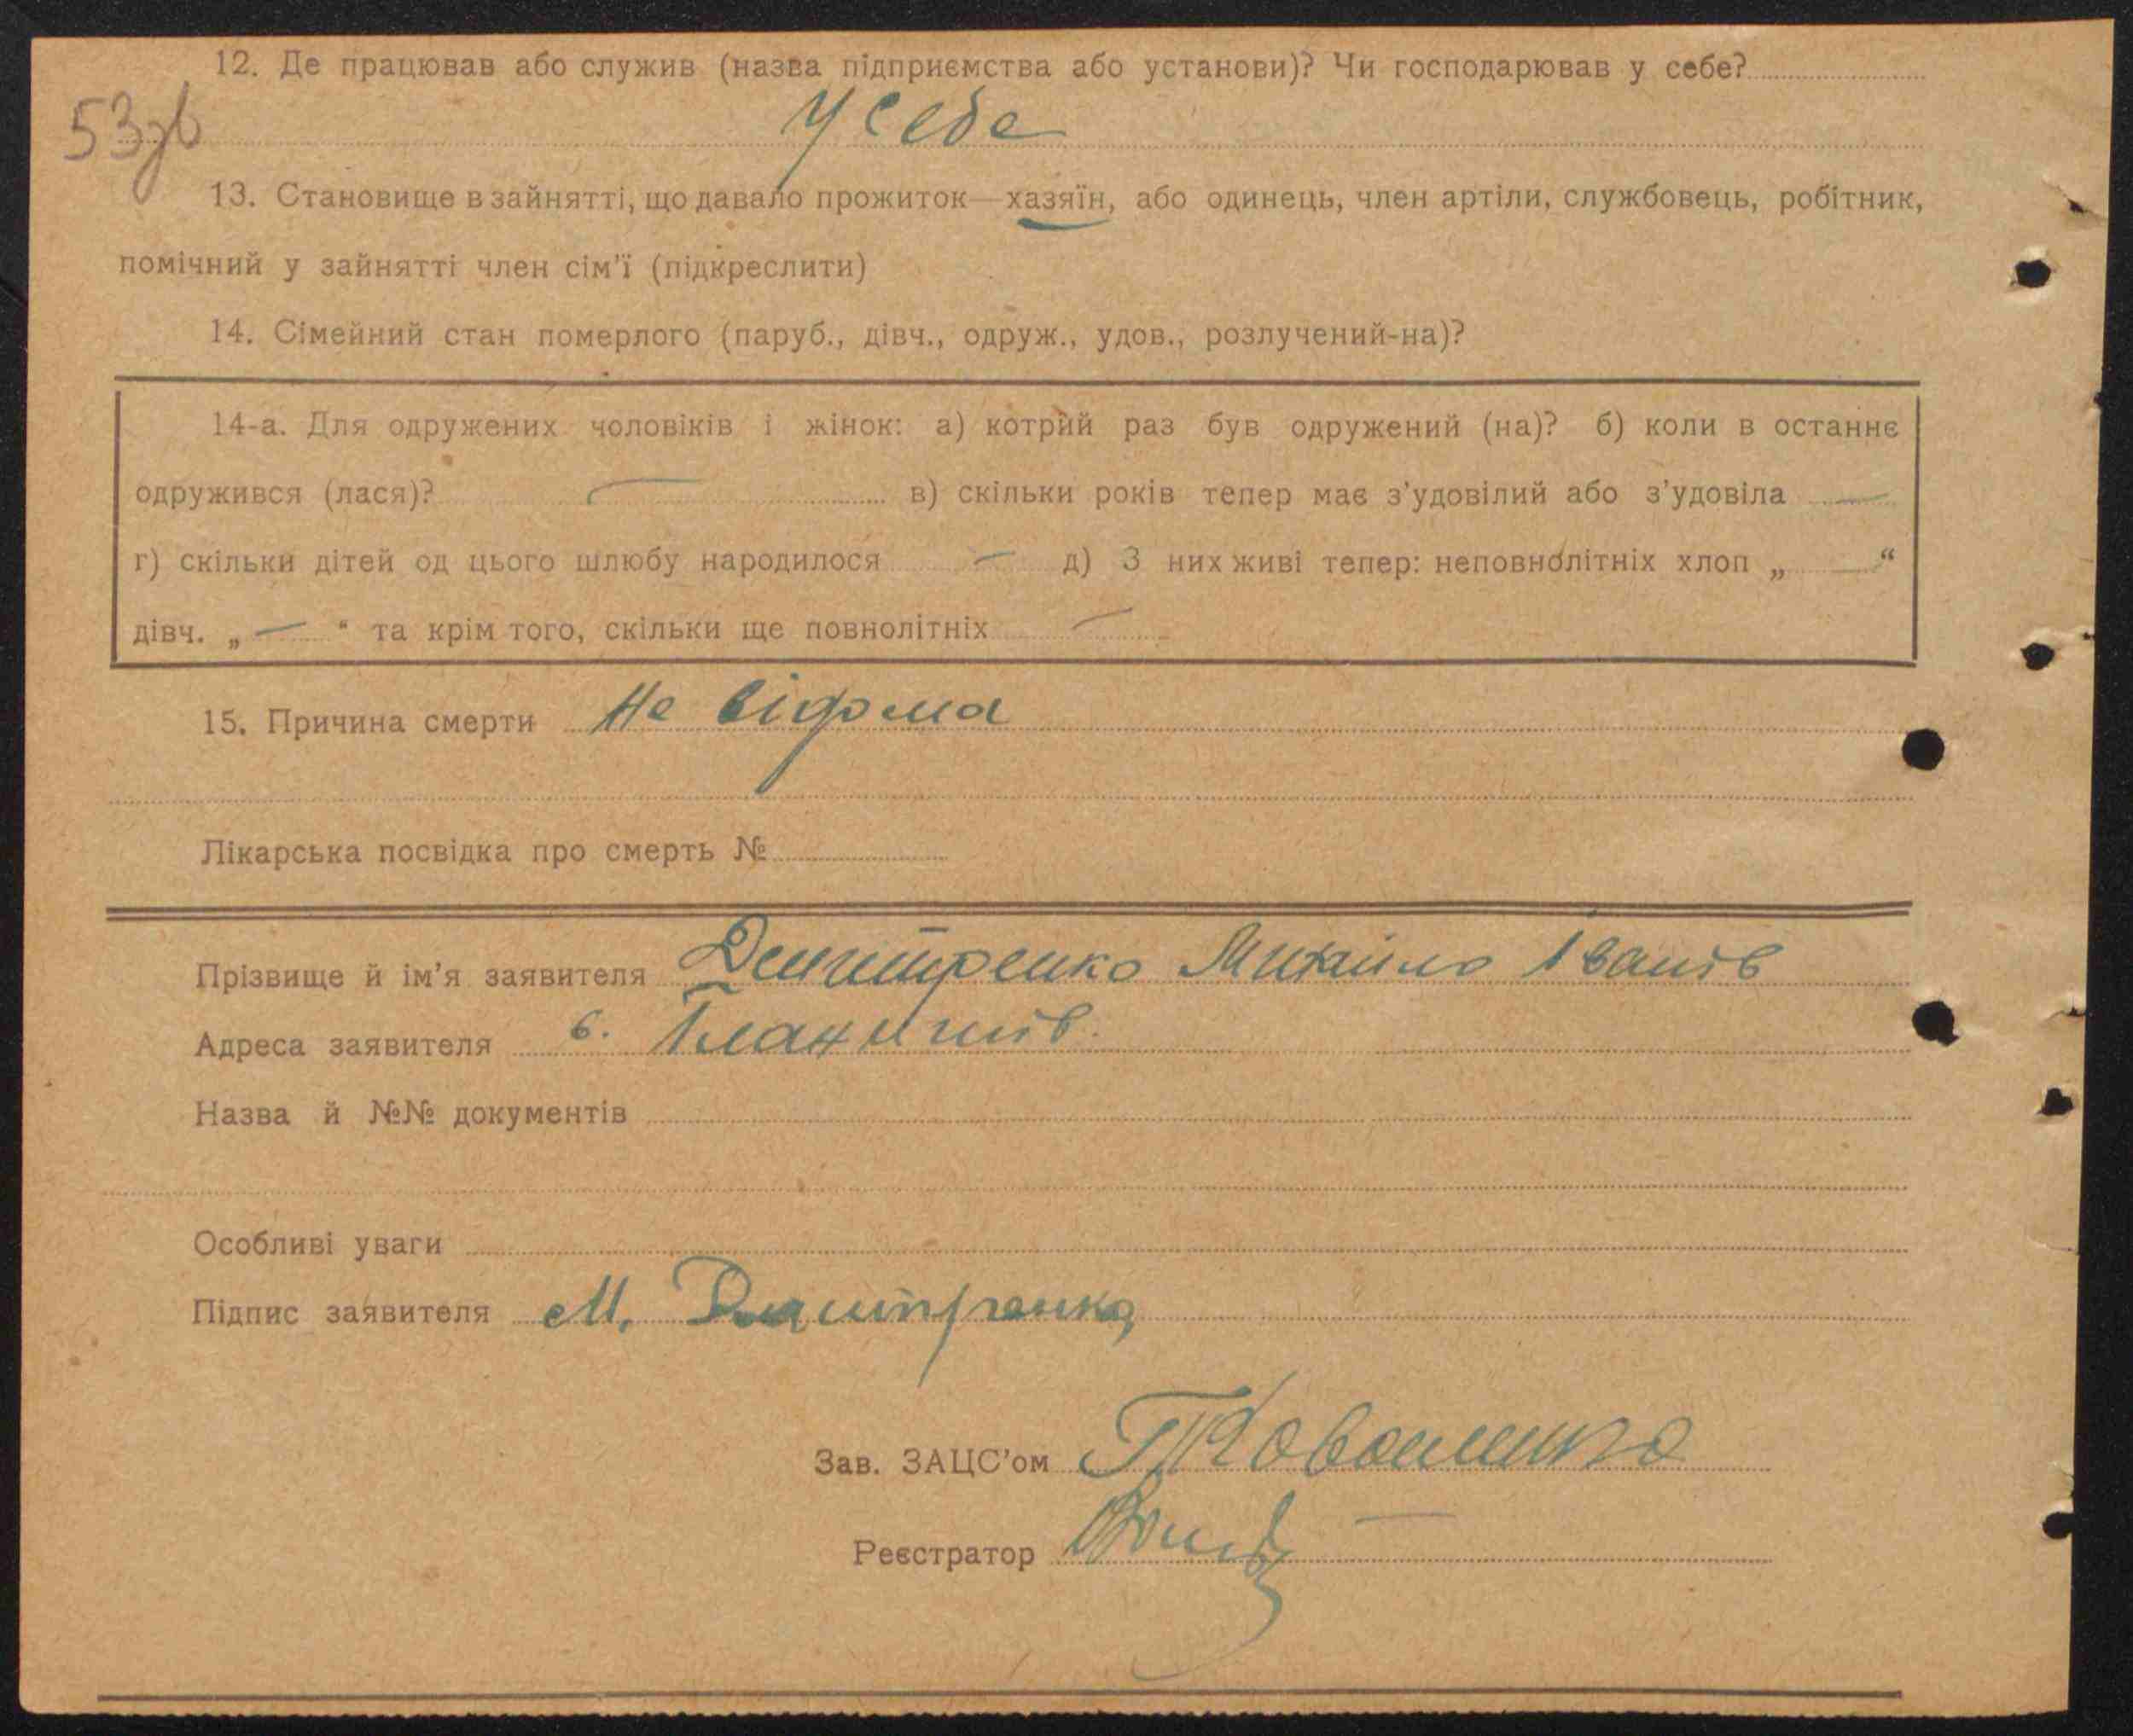 12. Де працював або служив (назва підприємства або установи)? Чи господарював у себе?
53зв
У себе
13. Становище в зайнятті, що давало прожиток—хазяїн, або одинець, член артіли, службовець, робітник,
помічний у зайнятті член сім'ї (підкреслити)
14. Сімейний стан померлого (паруб., дівч., одруж., удов., розлучений-на)?
14-а. Для одружених чоловіків і жінок: а) котрий раз був одружений (на)? б) коли в останнє
одружився (лася)? — в) скільки років тепер має з'удовілий або з'удовіла —
г) скільки дітей од цього шлюбу народилося — д) З них живі тепер: неповнолітніх хлоп „ — “
дівч. „ — “ та крім того, скільки ще повнолітніх —
15. Причина смерти Не відома
Лікарська посвідка про смерть №
Прізвище й ім'я заявителя Демитренко Михайло Іванів
Адреса заявителя с.
Назва й №№ документів
Особливі уваги
Підпис заявителя М. Дмитренко
Зав. ЗАЦС'ом
Реєстратор